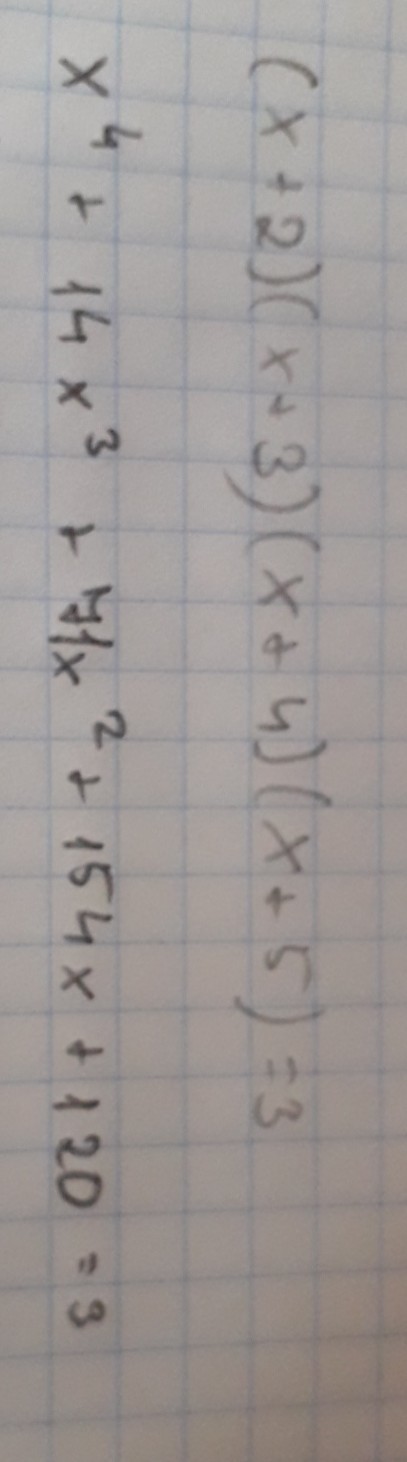 (x+2)(x+3)(x+4)(x+5) = 3
x⁴ + 14x³ + 71x² + 154x + 120 = 3